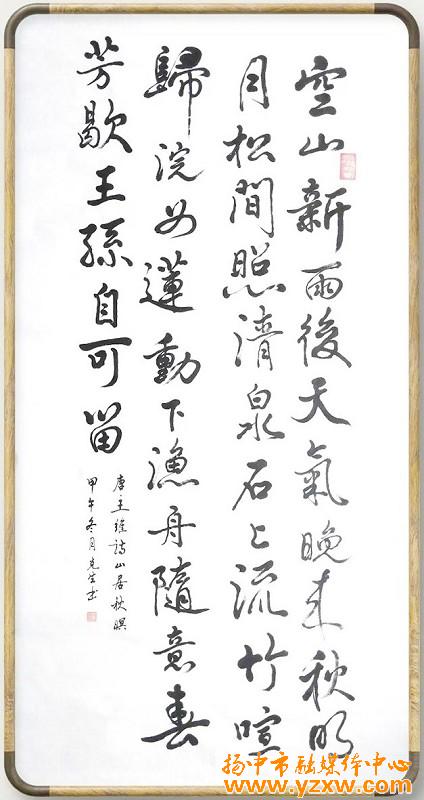 空山新雨後天氣晚来秋明
月松間照清泉石上流竹喧
歸浣女蓮動下漁舟隨意春
芳歇王孫自可留
唐王維詩山居秋暝
甲午冬月先生书
扬中市融媒体中心
www.yzxw.com